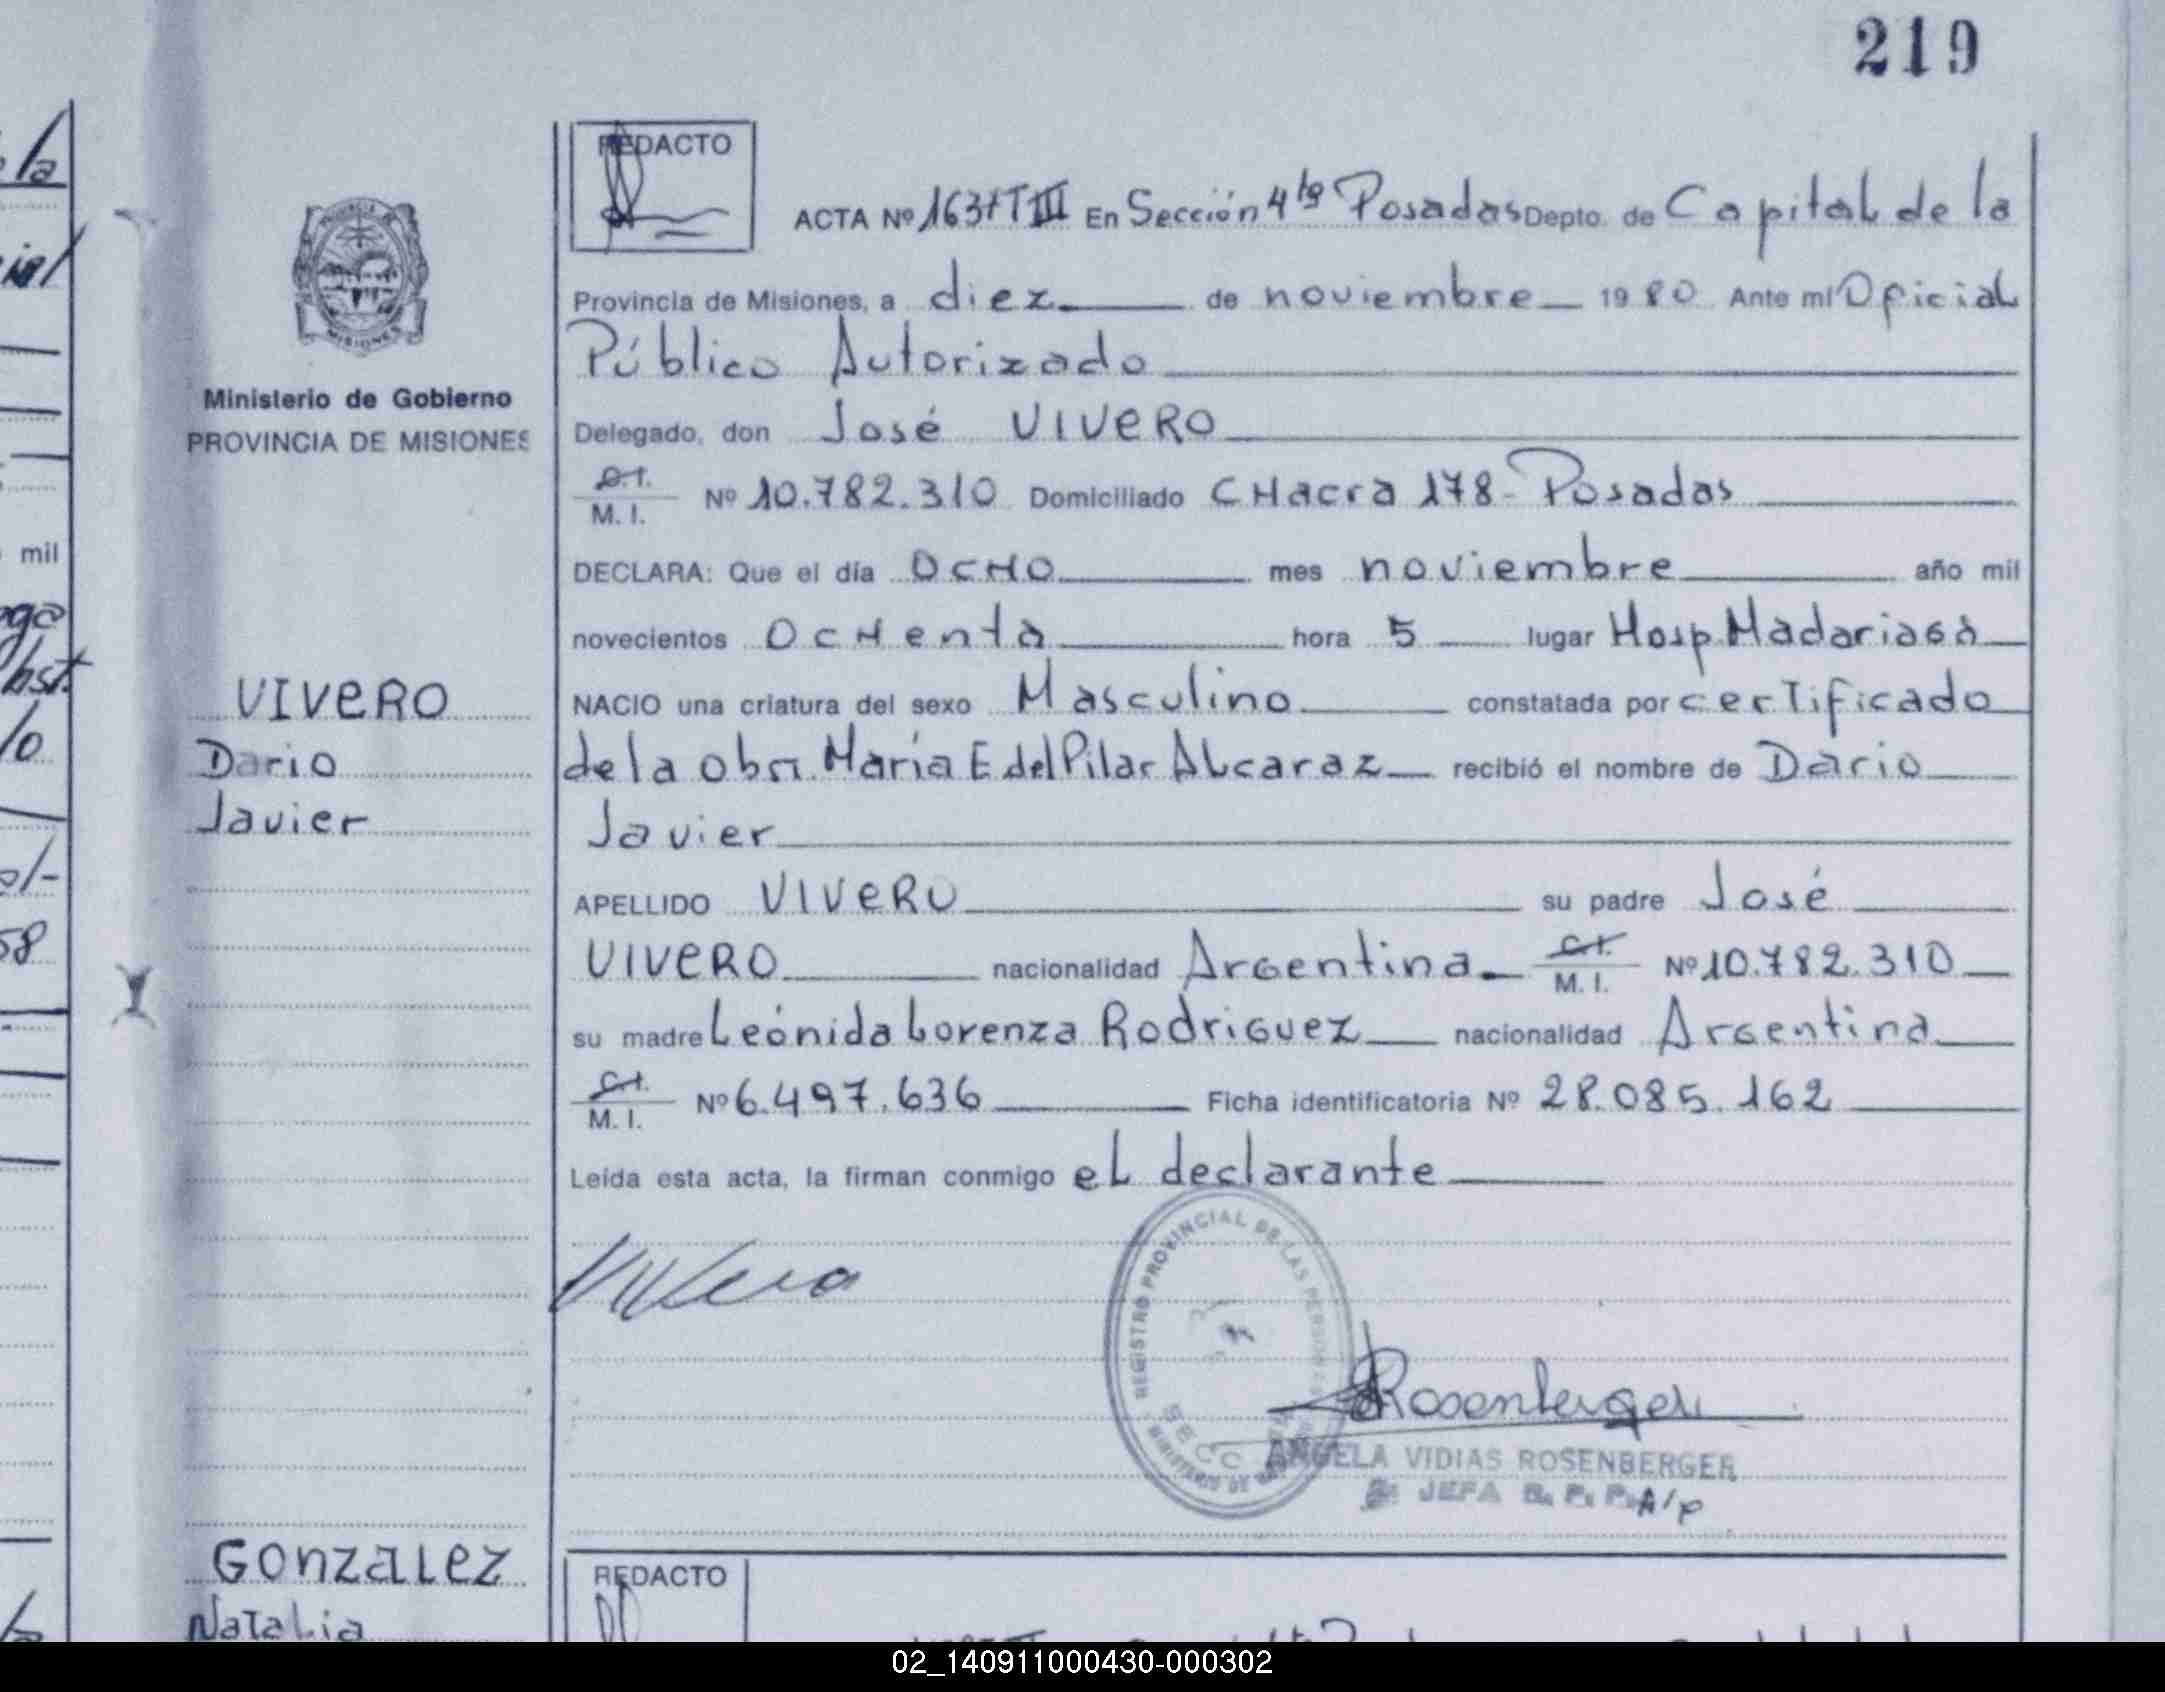 219
REDACTO
ACTA Nº 1637 T III En Sección 4ta Posadas Depto. de Capital de la
Provincia de Misiones, a diez de noviembre 1980 Ante mí Oficial
Público Autorizado
Delegado, don José VIVERO
C.I. M. I. Nº 10.782.310 Domiciliado CHacra 178- Posadas
DECLARA: Que el día OCHO mes noviembre año mil
novecientos OcHenta hora 5 lugar Hosp. Madariaga
NACIO una criatura del sexo Masculino constatada por certificado
de la obst. María E del Pilar Alcaraz recibió el nombre de Dario
Javier
APELLIDO VIVERO su padre José
VIVERO nacionalidad Argentina C.I. M. I. Nº 10.782.310
su madre Leónida Lorenza Rodriguez nacionalidad Argentina
C.I. M. I. Nº 6.497.636 Ficha identificatoria Nº 28.085.162
Leída esta acta, la firman conmigo el declarante
REGISTRO PROVINCIAL DE LAS PERSONAS
SECC
Rosenberger
ANGELA VIDIAS ROSENBERGER
JEFA
A/P
MISIONES
Ministerio de Gobierno
PROVINCIA DE MISIONES
VIVERO
Dario
Javier
GONZALEZ
Natalia
REDACTO
la
mil
58
02_140911000430-000302